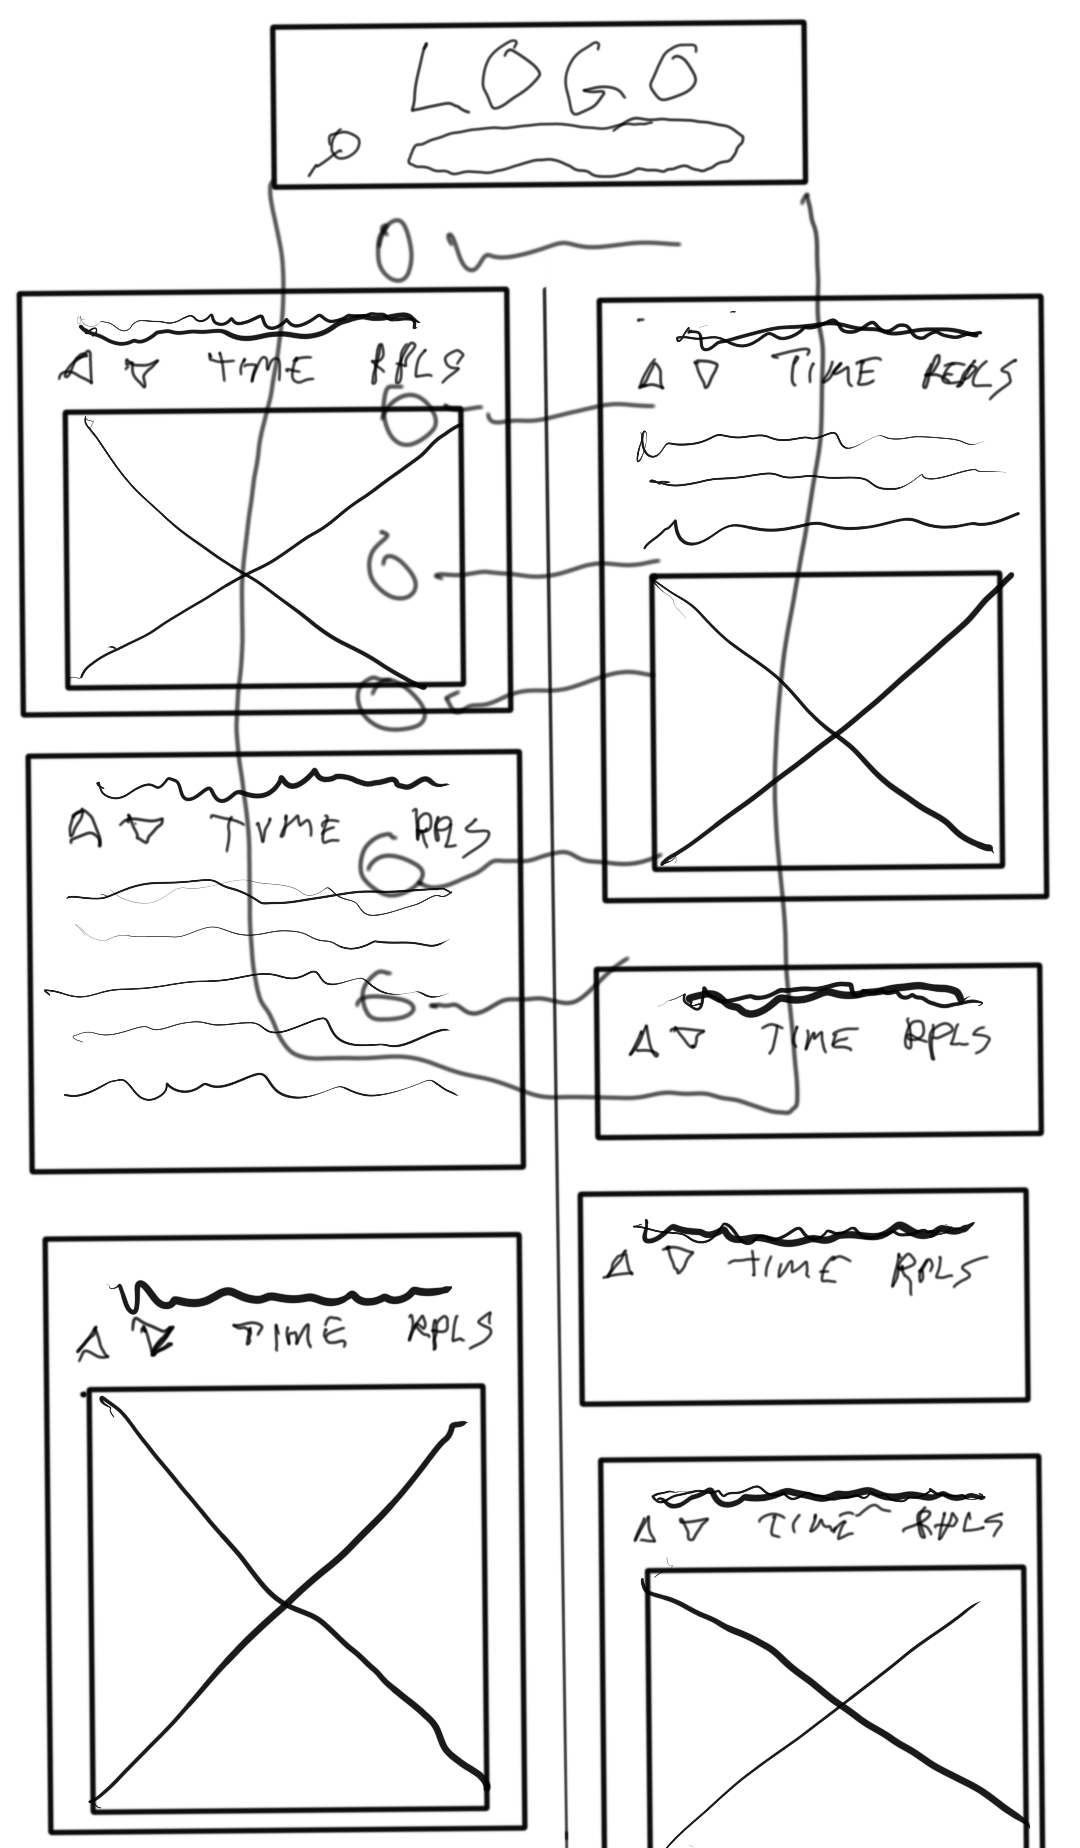 LOGO
TIME RPLS
TIME REPLS
TIME RPLS
TIME RPLS
TIME RPLS
TIME RPLS
TIME RPLS